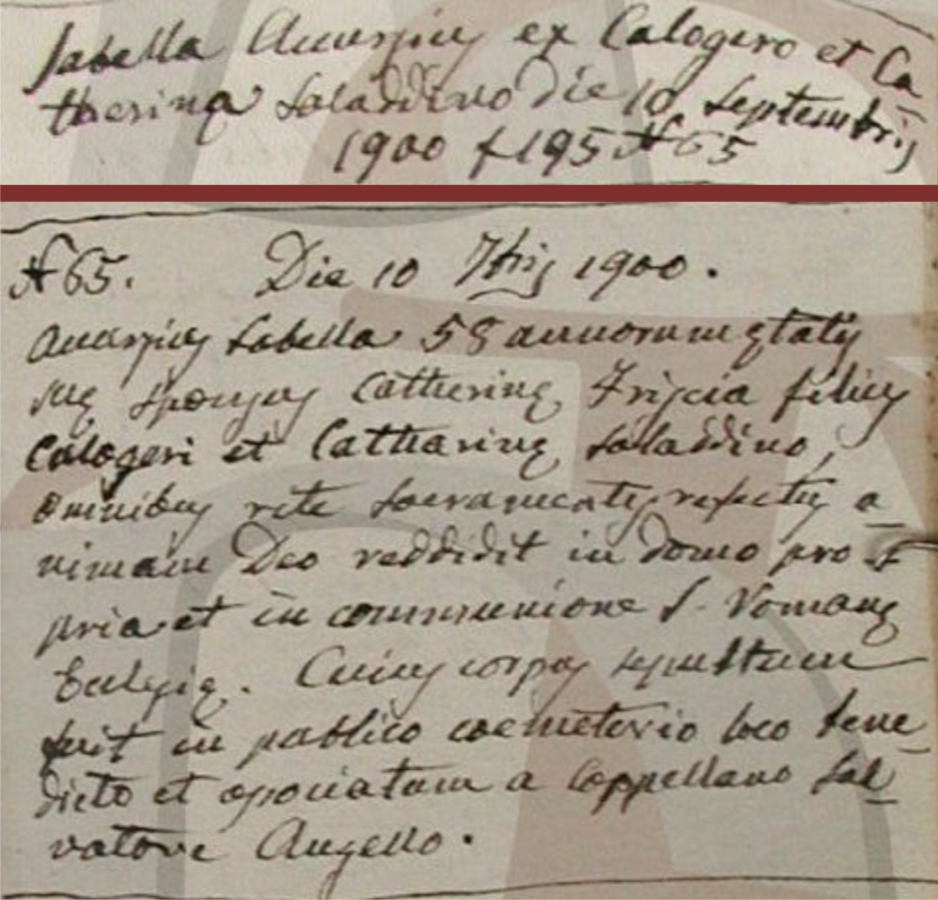 Sabella Accursius ex Calogero et Ca
therina Saladdino die 10 Septembris
1900 f 195 N 65
N 65. Die 10 7bris 1900.
Accursius Sabella 58 annorum ętatis
suę sponsus Catherinę Friscia filius
Calogeri et Catharinę Saladdino,
omnibus rite sacramentis refectus a
nimam Deo reddidit in domo pro
pria et in communione S. Romanę
Eclesię. Cuius corpus sepultum
fuit in publico coemeterio loco bene
dicto et sociatum a Coppellano Sal
vatore Augello.